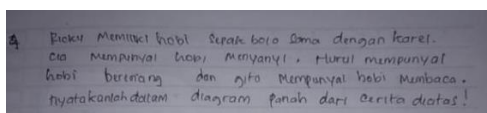 4 Ricky Memiliki hobi Sepak bola Sama dengan karel.
Cia Mempunyai hobi Menyanyi, Nurul mempunyai
hobi berenang dan gita Mempunyai hobi Membaca.
nyatakanlah dalam diagram panah dari cerita diatas!